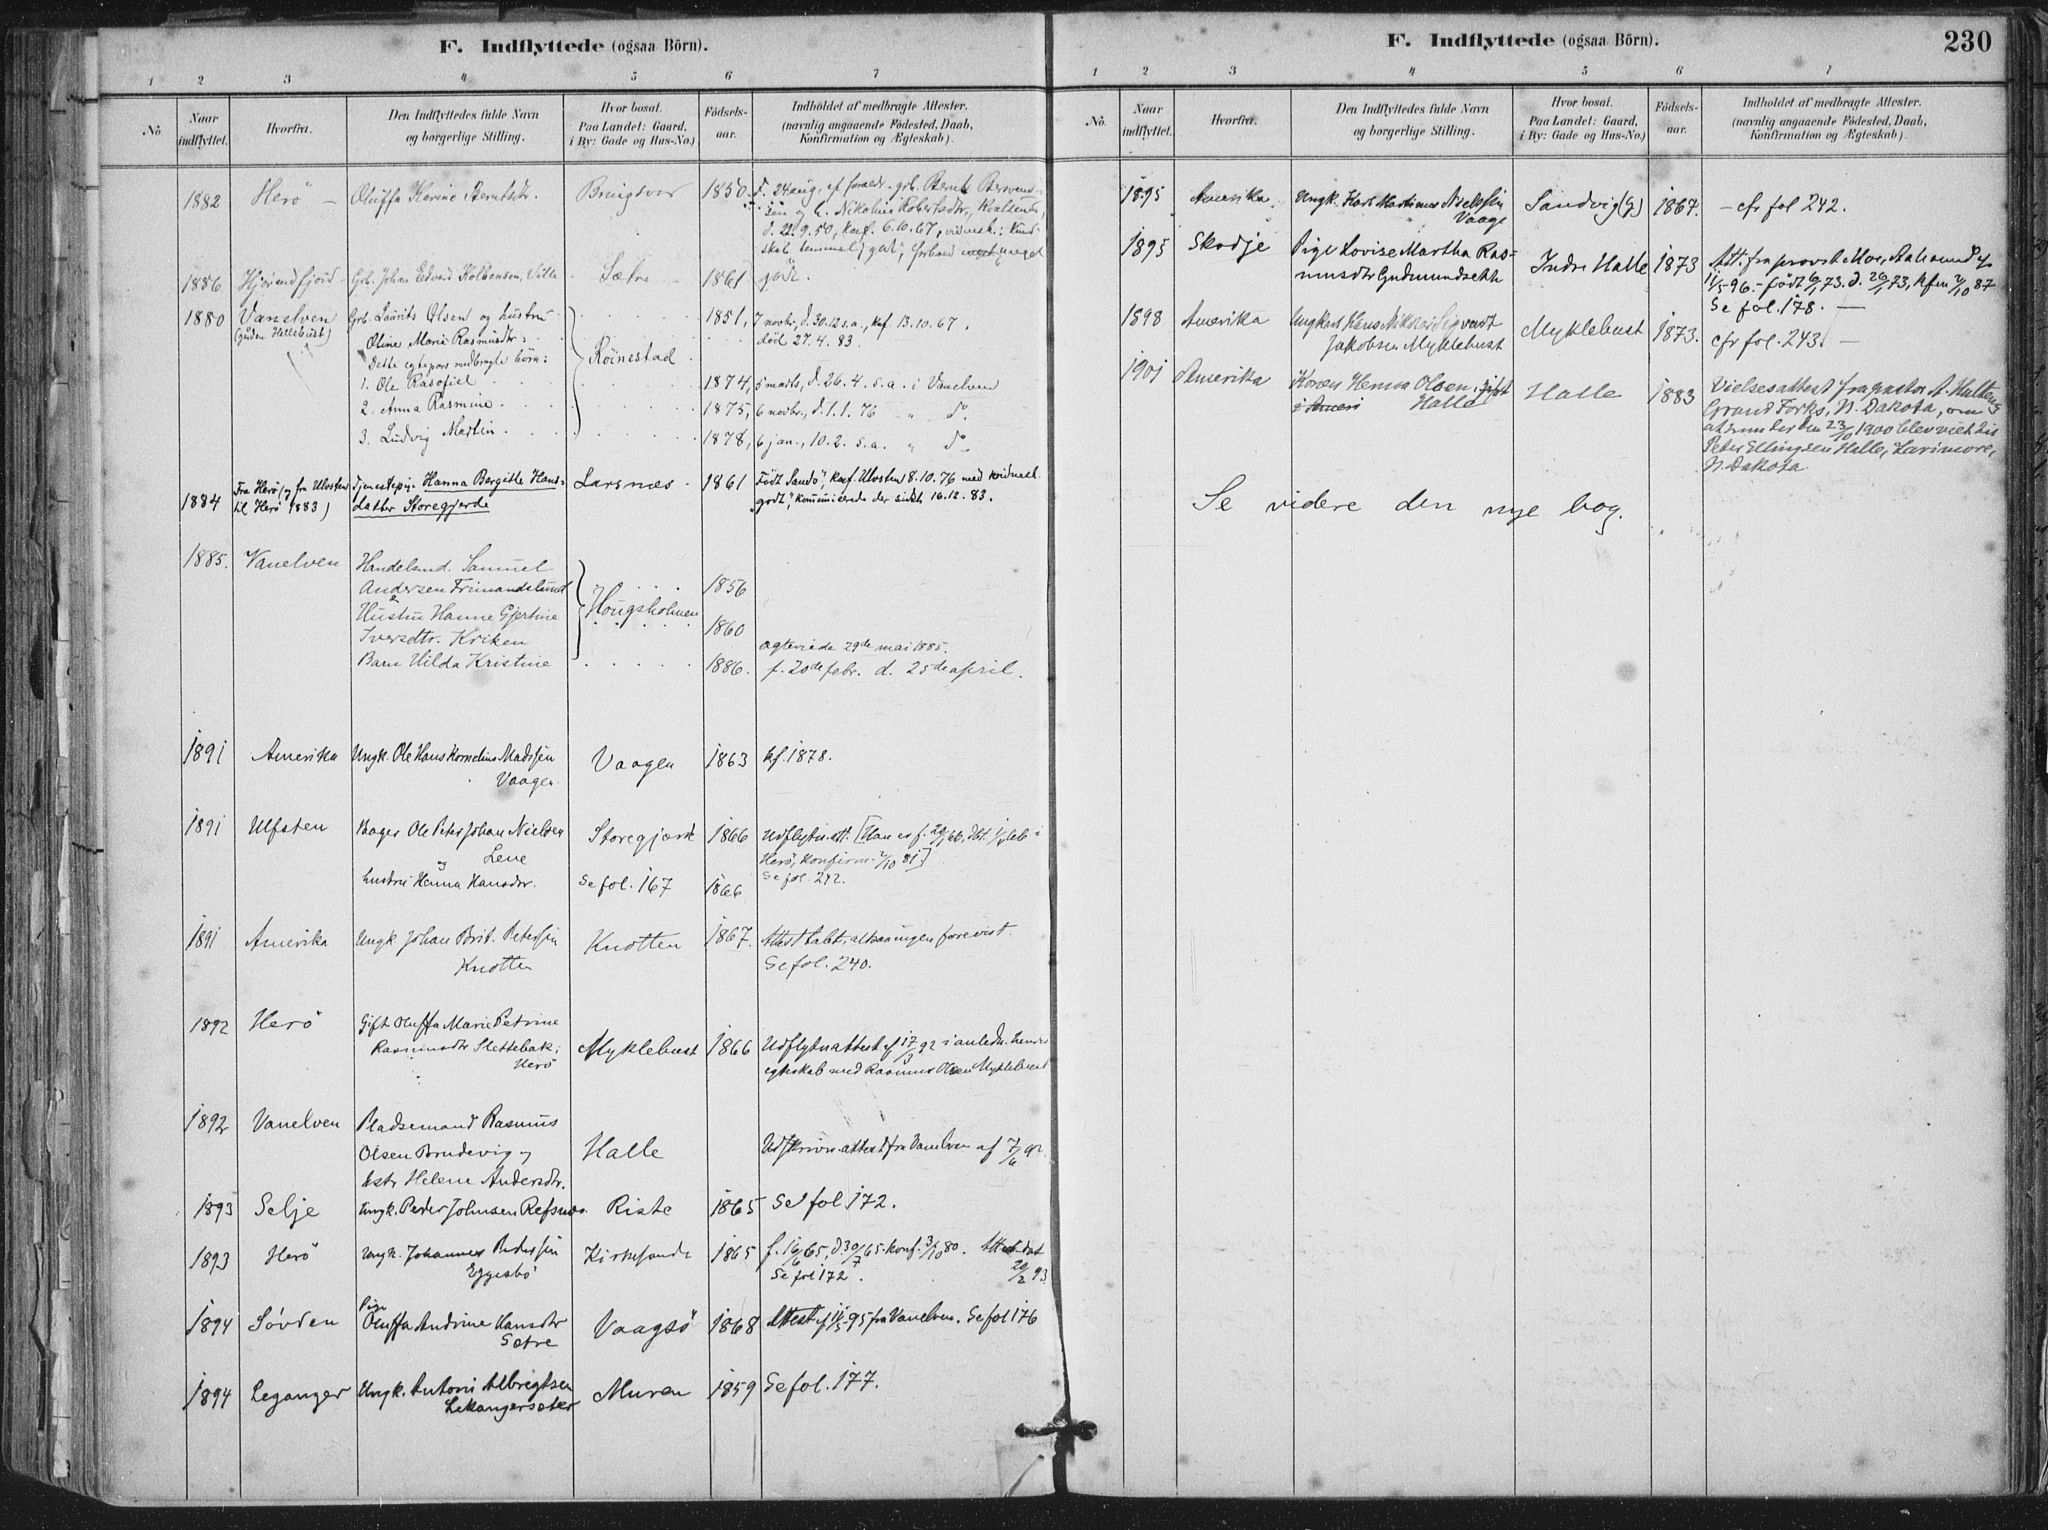 F. Indflyttede (ogsaa Börn).
1 2 3 4 5 6 7
No.
Naar indflyttet.
Hvorfra.
Den Indflyttedes fulde Navn og borgerlige Stilling.
Hvor bosat. Paa Landet: Gaard, i By: Gade og Hus-No.)
Födsels-aar.
Indholdet af medbragte Attester. (navnlig angaaende Födested, Daab, Konfirmation og Ægteskab).
1882 Herö – Oluffa Karine Berntsdr. 1850. f. 24 aug. af foraldr. grb. Bernt
og h. Nikoline Robertsdtr,
d. 22.9.50, konf. 6.10.67,
skab temmelig godt, forhold meget
1886 Hjörundfjord Grb. Johan Edvard Kolbensen, Sætre 1861 godt.
1880 Vanelven Grb. Laurits Olsen og hustru 1851, 7 novbr, d. 30.12 s.a., kof. 13.10.67.
(gården Hellebust) Oline Marie Rasmusdr: död 27.4.83.
Dette egtepars medbragte börn: Röinestad
1. Ole Rasofiel 1874, 5 marts, d. 26.4. s.a. i Vanelven
2. Anna Rasmine 1875, 6 novbr., d. 1.1.76 " do.
3. Ludvig Martin 1878, 6 jan., 10.2. s.a. " do
1884 Fra Herö (g fra Ulvsten Tjenestepig. Hanna Bergitte Hans- Larsnæs 1861 Födt Sandö", konf. Ulvsten 8.10.76 med kvidmesk.
til Herö 1883) datter Storegjerde godt", kommunicerede der sidst 16.12.83.
1885. Vanelven Handelsmd. Samuel
Andersen Frimandslund 1856
& Hustru Hanne Gjertine Hougsholmen 1860
Iversdtr. Kriken ægteviede 29de mai 1885.
Barn Hilda Kristine 1886. f. 20de febr. d. 25de april.
1891 Amerika Ungk. Ole Hans Kornelius Madssen Vaagen 1863 kf. 1878.
Vaagen
1891 Ulfsten Bager Ole Peter Johan Nielsen Storegjærde 1866 Udflytn. att. [Han er f. 29/1 66, dbt. 1/4 66 i
Lene Herö, konfirm. 2/10 81]
og hustru Hanna Hansdr. Se fol. 167 1866 Se fol. 242.
1891 Amerika Ungk Johan Brit. Peterssen Knotten 1867. Attest tabt, altsaa ingen forevist.
Knotten Se fol. 240.
1892 Herö Gift Oluffa Marie Petrine
Rasmusdtr Slettebak; Myklebust 1866 Udflytn attest af 17/3 92 i anledn. hendes
Herö egteskab med Rasmus Olsen Myklebust
1892 Vanelven Pladsemand Rasmus
Olsen Brudevig og Halle Udskrivn. attest fra Vanelven af 7/6 92.
hstr Helene Andersdtr.
1893 Selje Ungk. Peder Johnsen Refsnæs. Riste 1865 Se fol 172.
1893 Herö Ungk. Johannes Pederssen Kirkesande 1865 f. 16/6 65, d. 30/7 65. konf. 3/10 80. Attest dat
Eggesbö Se fol 172. 20/2 93.
1894 Sövden Pige Oluffa Andrine Hansdtr Vaagsö 1868 Attest af 11/5 95 fra Vanelven. Se fol 176
Sætre
1894 Leganger Ungk. Antoni Albregtsen Muren 1859 Se fol. 177.
Lekangersæter
F. Indflyttede (ogsaa Börn). 230
1 2 3 4 5 6 7
No.
Naar indflyttet.
Hvorfra.
Den Indflyttedes fulde Navn og borgerlige Stilling.
Hvor bosat. Paa Landet: Gaard, i By: Gade og Hus-No.)
Födsels-aar.
Indholdet af medbragte Attester. (navnlig angaaende Födested, Daab, Konfirmation og Ægteskab).
1895 Amerika Ungk. Karl Martinus Nielssen Sandvig (g) 1867. – cfr fol 242.
Vaage
1895 Skodje Pige Lovise Martha Ras- Indre Halle 1873 Att. fra provst Aalesund af
musdtr Gudmundset 11/5 96. – födt 6/1 73. d. 26/1 73, kfm 2/10 87
Se fol. 178. –
1898 Amerika Ungkarl Hans Nikolai Sigvardt Myklebust 1873. cfr fol. 243. –
Jakobsen Myklebust
1901 Amerika Konen Hanna Olsen, gift Halle 1883 Vielsesattest fra pastor A. Hulteng
i Ameri Halle Grand Forks, N. Dakota, om
at hun der den 23/10 1900 blev viet til
Peter Ellingsen Halle, Larimore,
N. Dakota
Se videre den nye bog.